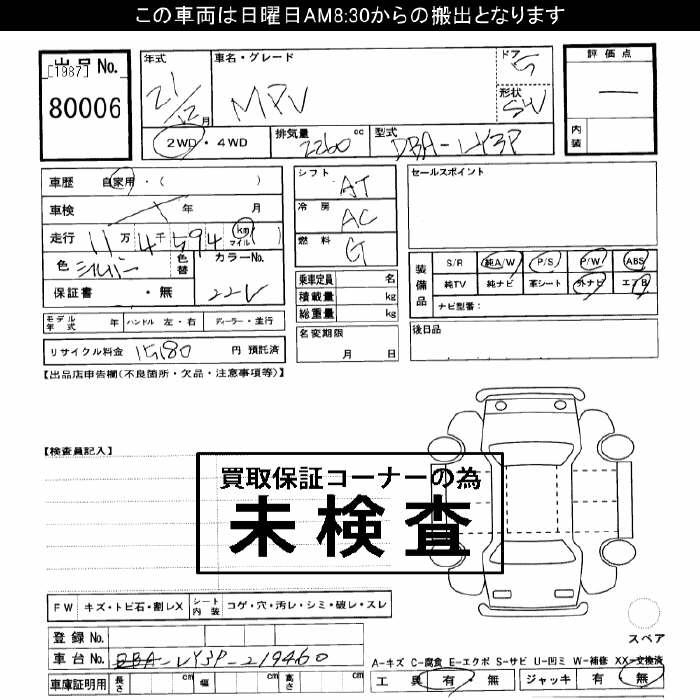 この車両は日曜日AM8:30からの搬出となります
出品No.
[1987]
80006
年式
21/12月
車名・グレード
MPV
ドア
5
形状
SW
評価点
—
内装
2WD・4WD
排気量 2260 cc
型式 DBA-LY3P
車歴 自家用・( )
車検 年 月
走行 11万4千594 km マイル
色 シルバー 色替 カラーNo.
保証書・無 22V
シフト AT
冷房 AC
燃料 G
乗車定員 名
積載量 kg
総重量 kg
名変期限
月 日
セールスポイント
装備品
S/R 純A/W P/S P/W ABS
純TV 純ナビ 革シート 外ナビ エアB
ナビ型番:
後日品
モデル年式 年 ハンドル 左・右 ディーラー・並行
リサイクル料金 15180 円 預託済
【出品店申告欄(不良箇所・欠品・注意事項等)】
【検査員記入】
買取保証コーナーの為
未検査
FW キズ・トビ石・割レX シート内装 コゲ・穴・汚レ・シミ・破レ・スレ
登録No.
車台No. DBA-LY3P-219460
車庫証明用 長さ cm 幅 cm 高さ cm
スペア
A-キズ C-腐食 E-エクボ S-サビ U-凹ミ W-補修 XX-交換済
工具 有・無 ジャッキ 有・無